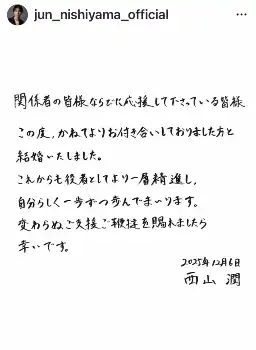 jun_nishiyama_official
関係者の皆様ならびに応援して下さっている皆様
この度、かねてよりお付き合いしておりました方と
結婚いたしました。
これからも役者としてより一層精進し、
自分らしく一歩ずつ歩んでまいります。
変わらぬご支援ご鞭撻を賜れましたら
幸いです。
2025年12月6日
西山 潤